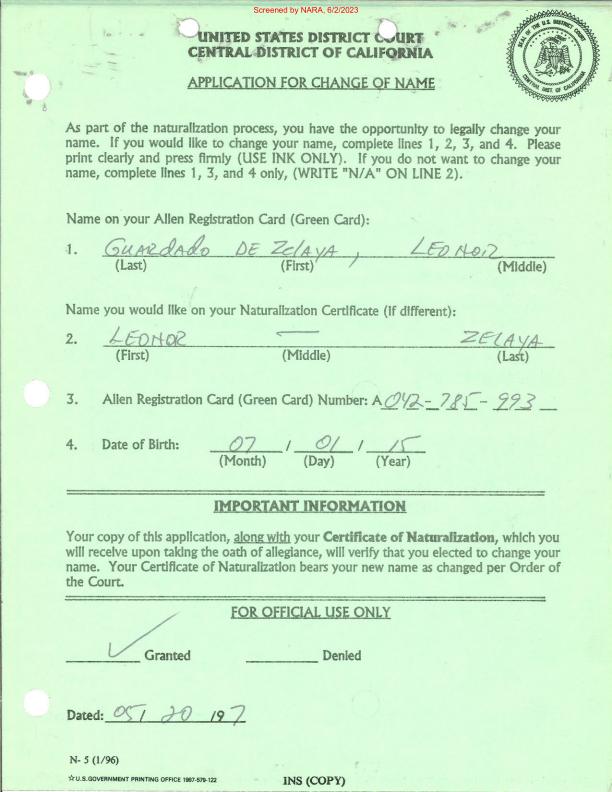 Screened by NARA, 6/2/2023
UNITED STATES DISTRICT COURT
CENTRAL DISTRICT OF CALIFORNIA
SEAL OF THE U.S. DISTRICT COURT
CENTRAL DIST. OF CALIFORNIA
APPLICATION FOR CHANGE OF NAME
As part of the naturalization process, you have the opportunity to legally change your
name. If you would like to change your name, complete lines 1, 2, 3, and 4. Please
print clearly and press firmly (USE INK ONLY). If you do not want to change your
name, complete lines 1, 3, and 4 only, (WRITE "N/A" ON LINE 2).
Name on your Alien Registration Card (Green Card):
1. GUARDADO DE ZELAYA, LEONOR
(Last) (First) (Middle)
Name you would like on your Naturalization Certificate (if different):
2. LEONOR — ZELAYA
(First) (Middle) (Last)
3. Alien Registration Card (Green Card) Number: A 042-785-993
4. Date of Birth: 07 / 01 / 15
(Month) (Day) (Year)
IMPORTANT INFORMATION
Your copy of this application, along with your Certificate of Naturalization, which you
will receive upon taking the oath of allegiance, will verify that you elected to change your
name. Your Certificate of Naturalization bears your new name as changed per Order of
the Court.
FOR OFFICIAL USE ONLY
✓ Granted Denied
Dated: 05/ 20 197
N- 5 (1/96)
☆U.S.GOVERNMENT PRINTING OFFICE 1997-579-122
INS (COPY)